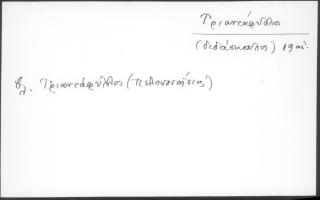 Τριαντάφυλλος
(διδάσκαλος) 19 αἰ.
βλ. Τριαντάφυλλος (Πελοποννήσιος)